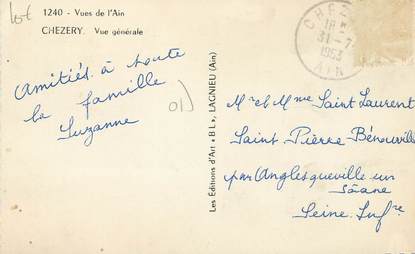 lot
1240 - Vues de l'Ain
CHEZERY. Vue générale
Amitiés à toute
la famille
Suzanne
01
Les Editions d'Art "BL", LAGNIEU (Ain)
CHEZ
18
31-7
1953
AIN
Mr et Mme Saint Laurent
Saint Pierre Bénouville
par Anglesqueville sur
Sâane
Seine Infre